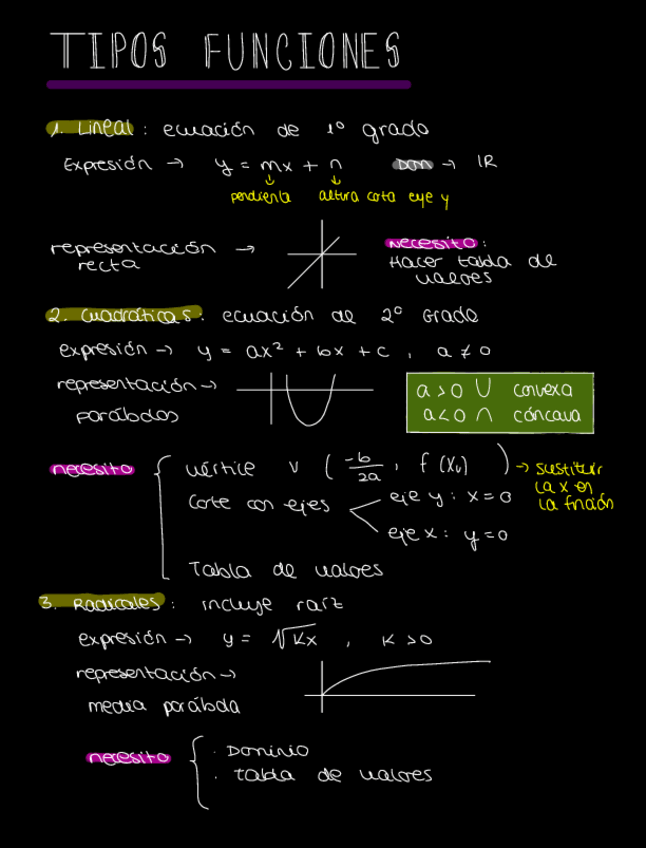 TIPOS FUNCIONES
1. Lineal : ecuación de 1º grado
Expresión → y = mx + n Dom → IR
pendiente altura corta eye y
representación →
recta
necesito :
Hacer tabla de
valores
2. Cuadráticas : ecuación de 2º Grado
expresión → y = ax² + bx + c , a ≠ 0
representación →
parábolas
a > 0 ∪ convexa
a < 0 ∩ cóncava
necesito
vértice v ( -b/2a , f (Xv) ) → sustituir
la x en
la función
Corte con ejes
eje y : x = 0
eje x : y = 0
Tabla de valores
3. Radicales : incluye raíz
expresión → y = √Kx , K > 0
representación →
media parábola
necesito
· Dominio
· tabla de valores